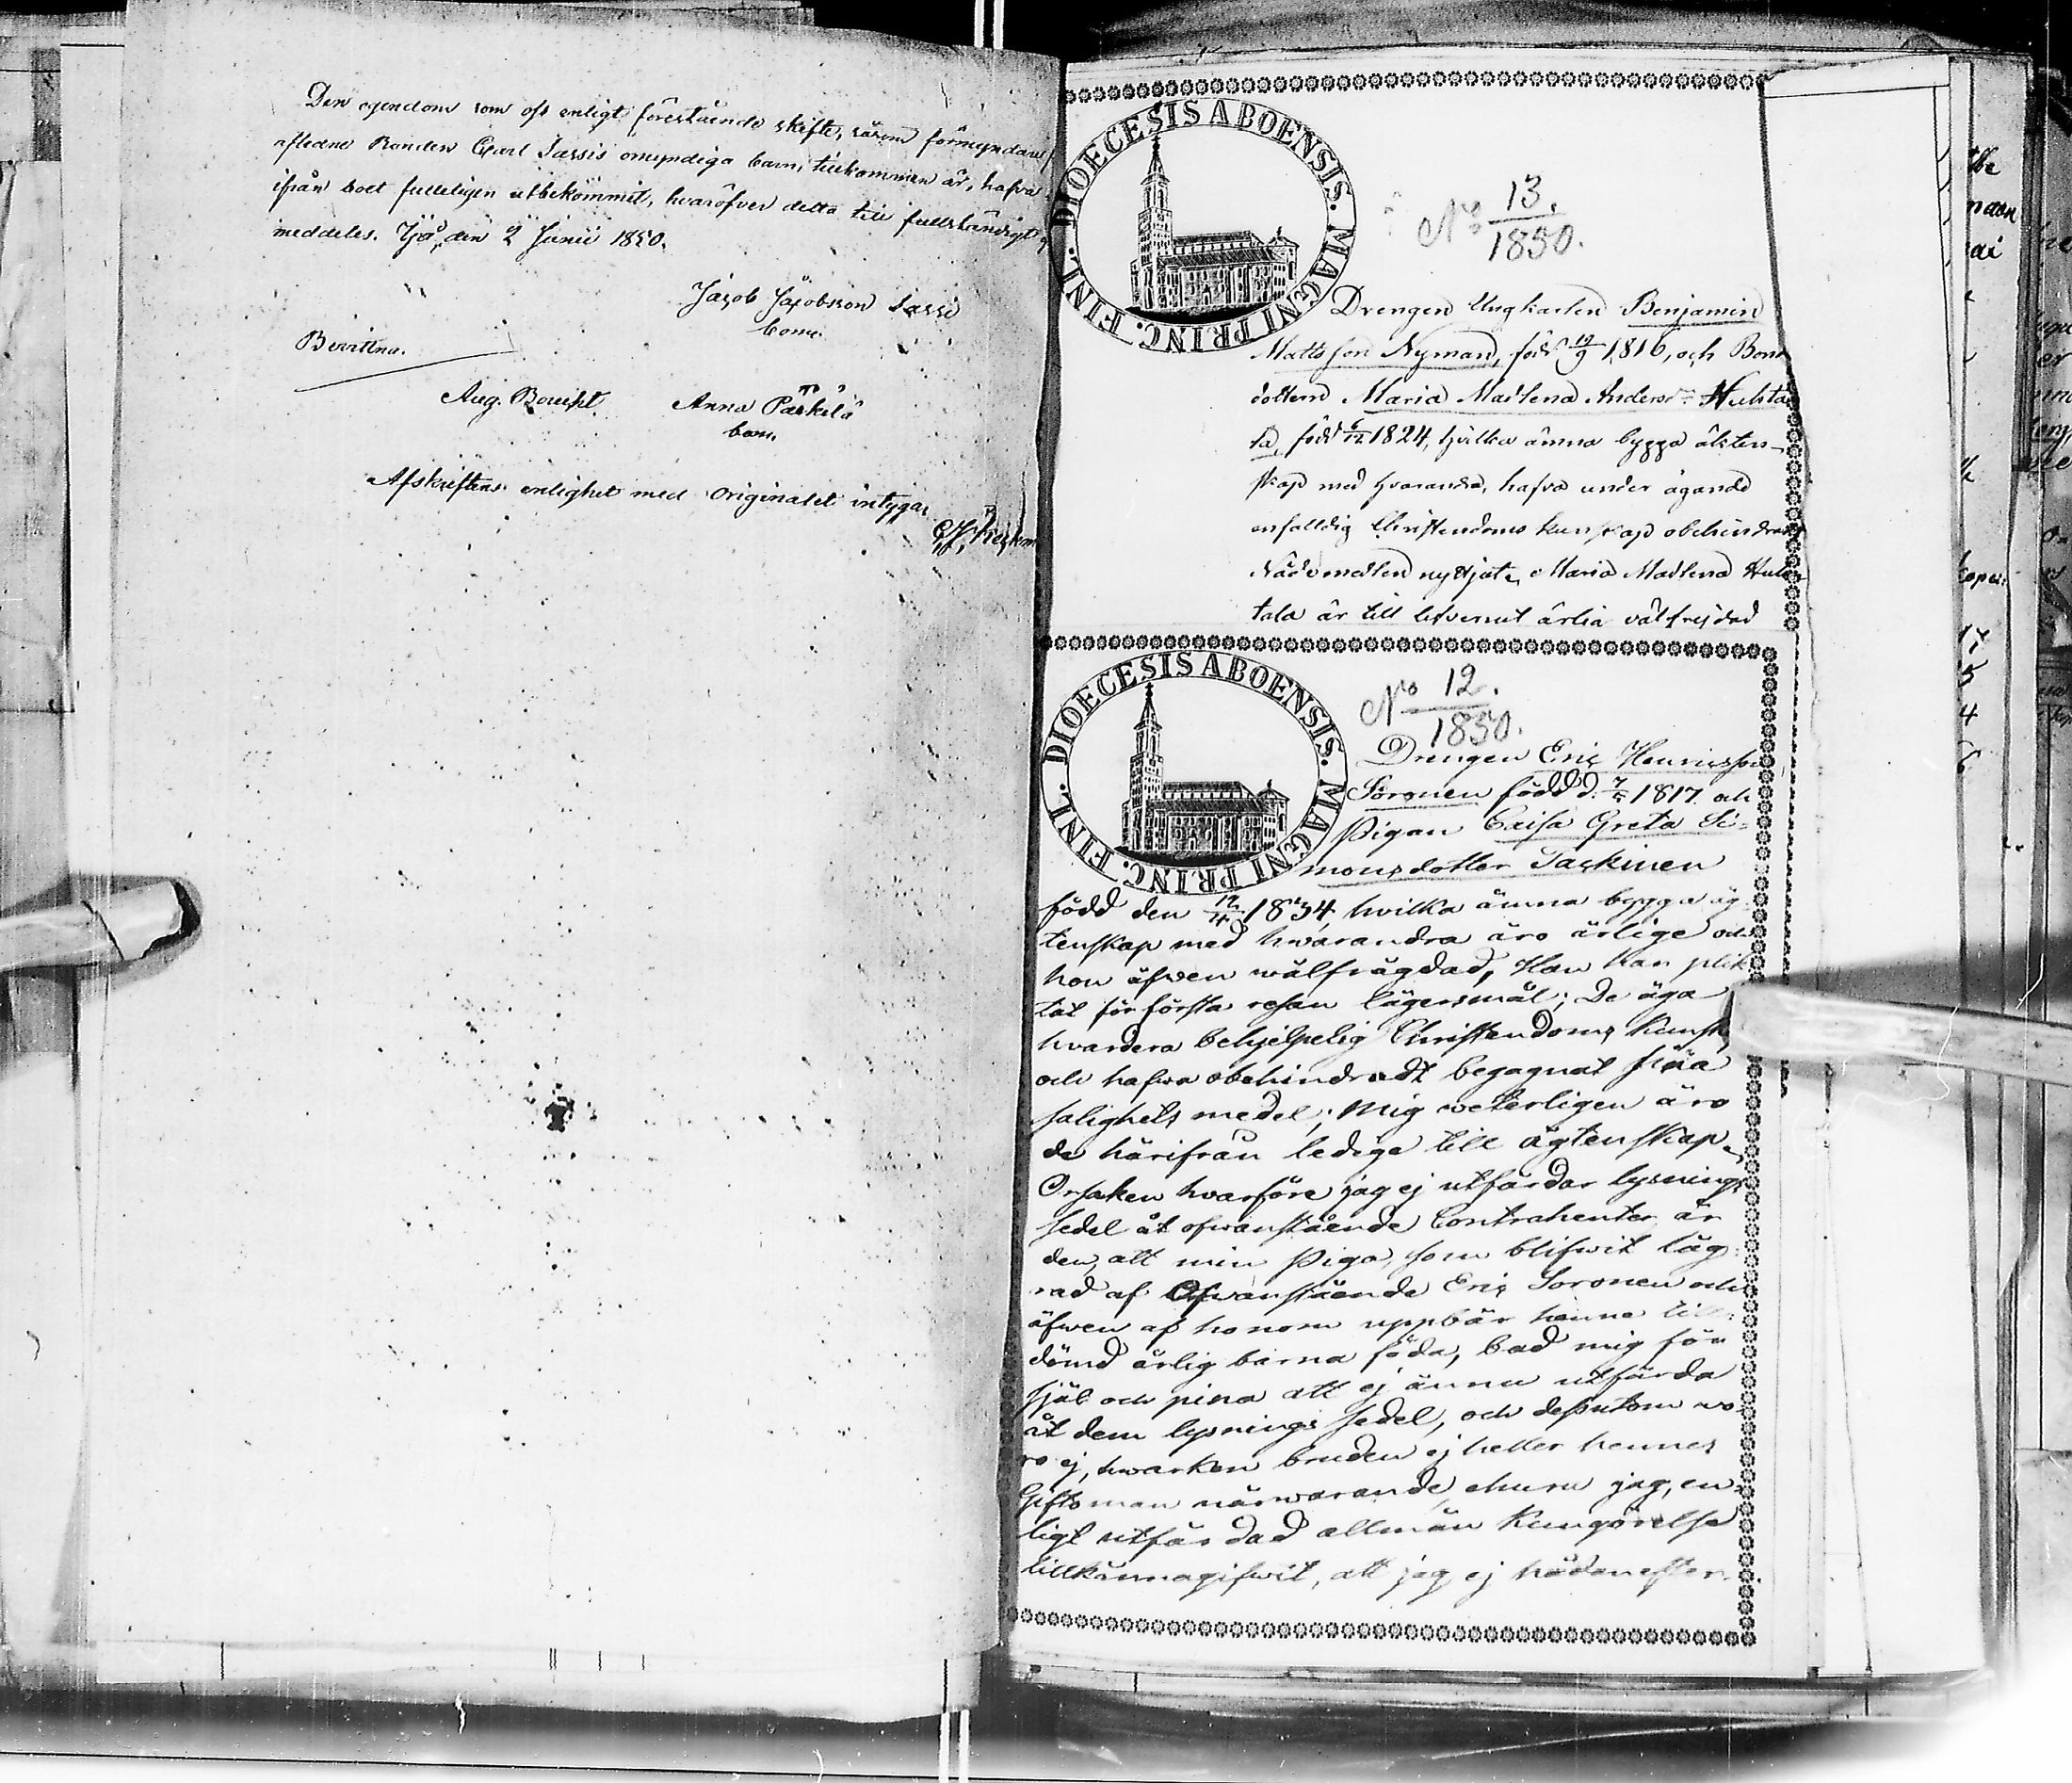 Den egendom som oss enligt förestående skifte, såsom förmyndare
afledne Bonden Carl Sassis omyndiga barn, tillkommen är, hafva
ifrån boet fulleligen utbekommit, hvaröfver detta till fullständigt q
meddeles. Yjö, den 2 Junii 1850.
Jacob Jacobsson Sassi
bom.
Bevittna.
Aug. Boucht. Anna Parkila
bom.
Afskriftens enlighet med originalet intygar
DIOECESIS ABOENSIS. MAGNI PRINC. FINL.
No 13.
1850.
Drengen Ungkarlen Benjamin
Matts son Nyman, född 19/9 1816, och Bond
dottern Maria Madlena Andersd: Huhta
la, född 6/12 1824, hvilka ämna bygga äkten-
skap med hvarandra, hafva under ägande
enfalldig Christendoms kunskap obehindradt
Nådemedlen nyttjat, Maria Madlena Huh
tala är till lefvernet ärlig välfrejdad
DIOECESIS ABOENSIS. MAGNI PRINC. FINL.
No 12.
1850.
Drengen Eric Henricsson
Soronen född d. 7/5 1817. och
Pigan Caisa Greta Si-
monsdotter Taskinen
född den 12/11 1834 hvilka ämna bygga äg
tenskap med hwarandra äro ärlige och
hon äfwen wälfrägdad, Han har plik
tat för första resan lägersmål; De äga
hvardera behjelpelig Christendoms kunsk
och hafwa obehindradt begagnat sina
salighets medel; Mig weterligen äro
de härifrån ledige till ägtenskap.
Orsaken hwarföre jag ej utfärdar lysnings
sedel åt ofwanstående Contrahenter är
den, att min Piga, som blifwit läg
rad af Ofwanstående Eric Soronen och
äfwen af honom uppbär henne till-
dömd årlig barna föda, bad mig för
själ och pina att ej ännu utfärda
åt dem lysnings sedel, och dessutom wo
ro ej, hwarken bruden ej heller hennes
Giftoman närwarande, ehuru jag, en-
ligt utfärdad allmän Kungörelse
tillkännagifwit, att jag ej hädanefter